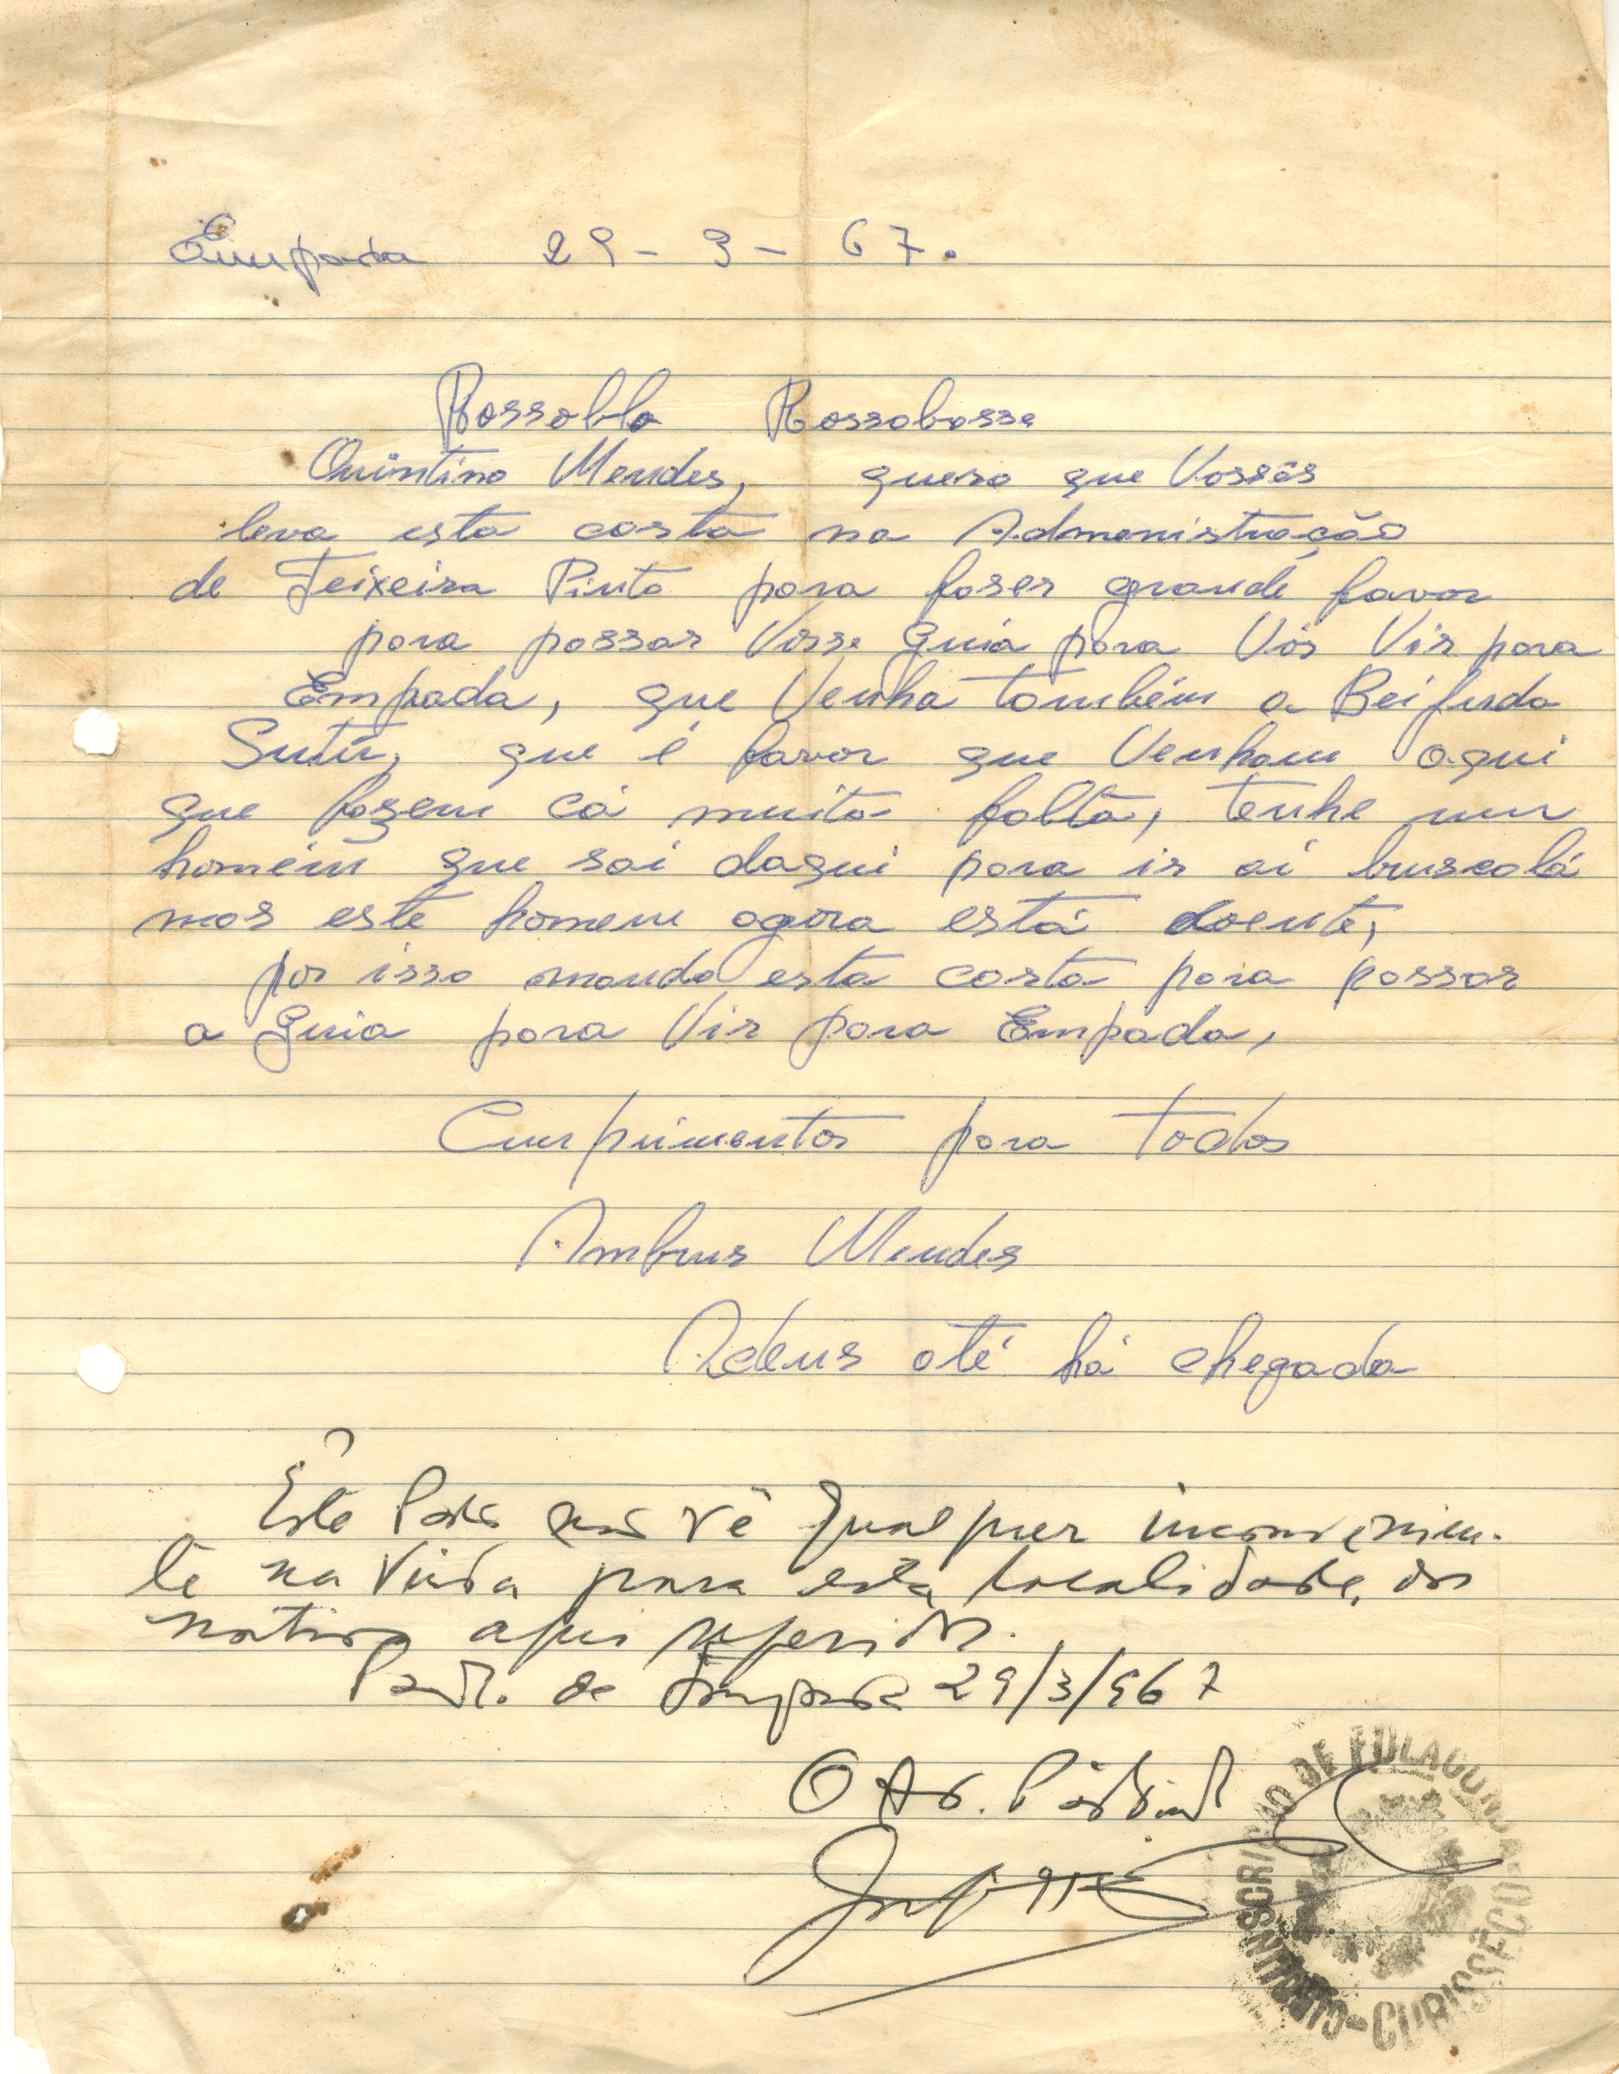 Empada 29-3-67.
Quintino Mendes, quero que Vossês
leva esta carta na Admenistração
de Teixeira Pinto para faser grande favor
para passar Vosse guia para Vós Vir para
Empada, que Venha também a
que é favor que Venham aqui
que fazem cá muita falta, tenho um
homem que sai daqui para ir aí buscalá
mas este homem agora está doente,
por isso manda esta carta para passar
a guia para Vir para Empada,
Cumprimentos para todos
Mendes
Adeus até há chegada
Este Posto não vê qualquer inconvenien-
te na vinda para esta localidade, dos
nativos aqui referidos.
de Empada 29/3/967
O
CIRCUNSCRIÇÃO DE FULACUNDA - CUBISSÉCO -